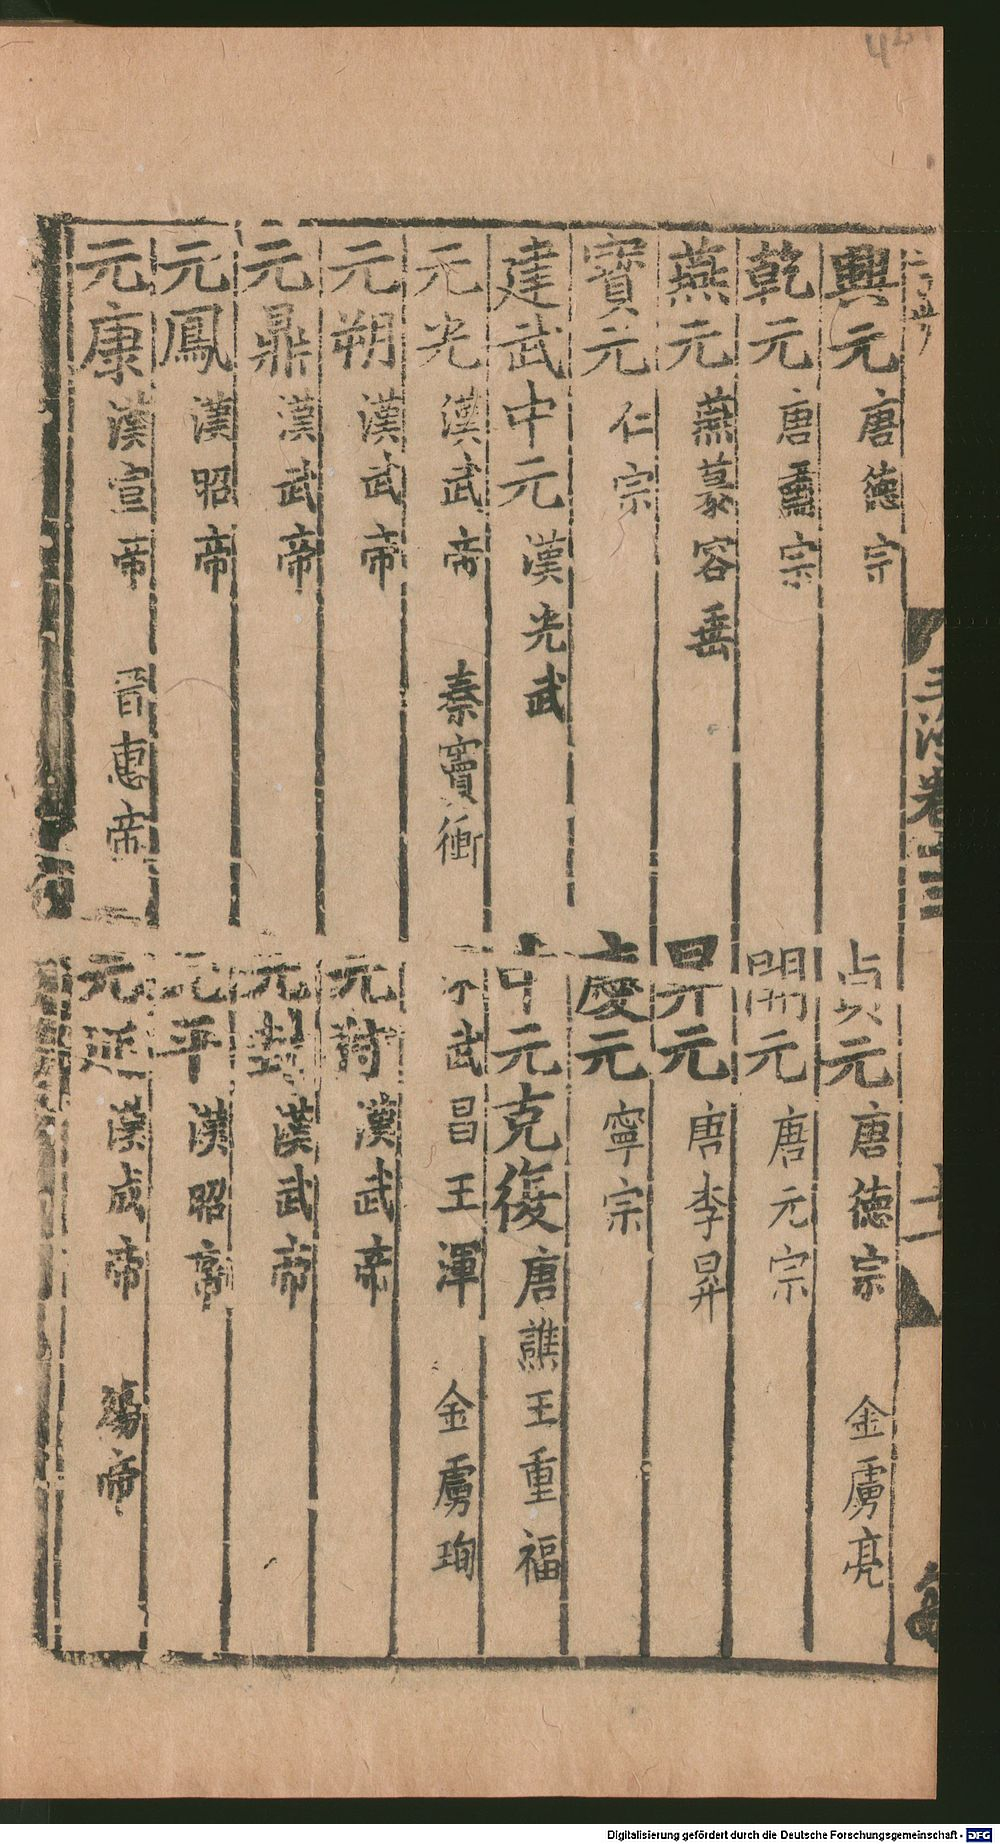 興元唐德宗
貞元唐德宗 金虜亮
乾元唐肅宗
開元唐元宗
燕元燕慕容垂
昇元唐李昇
寶元仁宗
慶元寧宗
建武中元漢光武
中元克復唐譙王重福
元光漢武帝 秦竇衝
武昌王渾 金虜珣
元朔漢武帝
元封漢武帝
元鼎漢武帝
元封漢武帝
元鳳漢昭帝
元平漢昭帝
元康漢宣帝 晉惠帝
元延漢成帝 煬帝
玉海卷十三
Digitalisierung gefördert durch die Deutsche Forschungsgemeinschaft - DFG